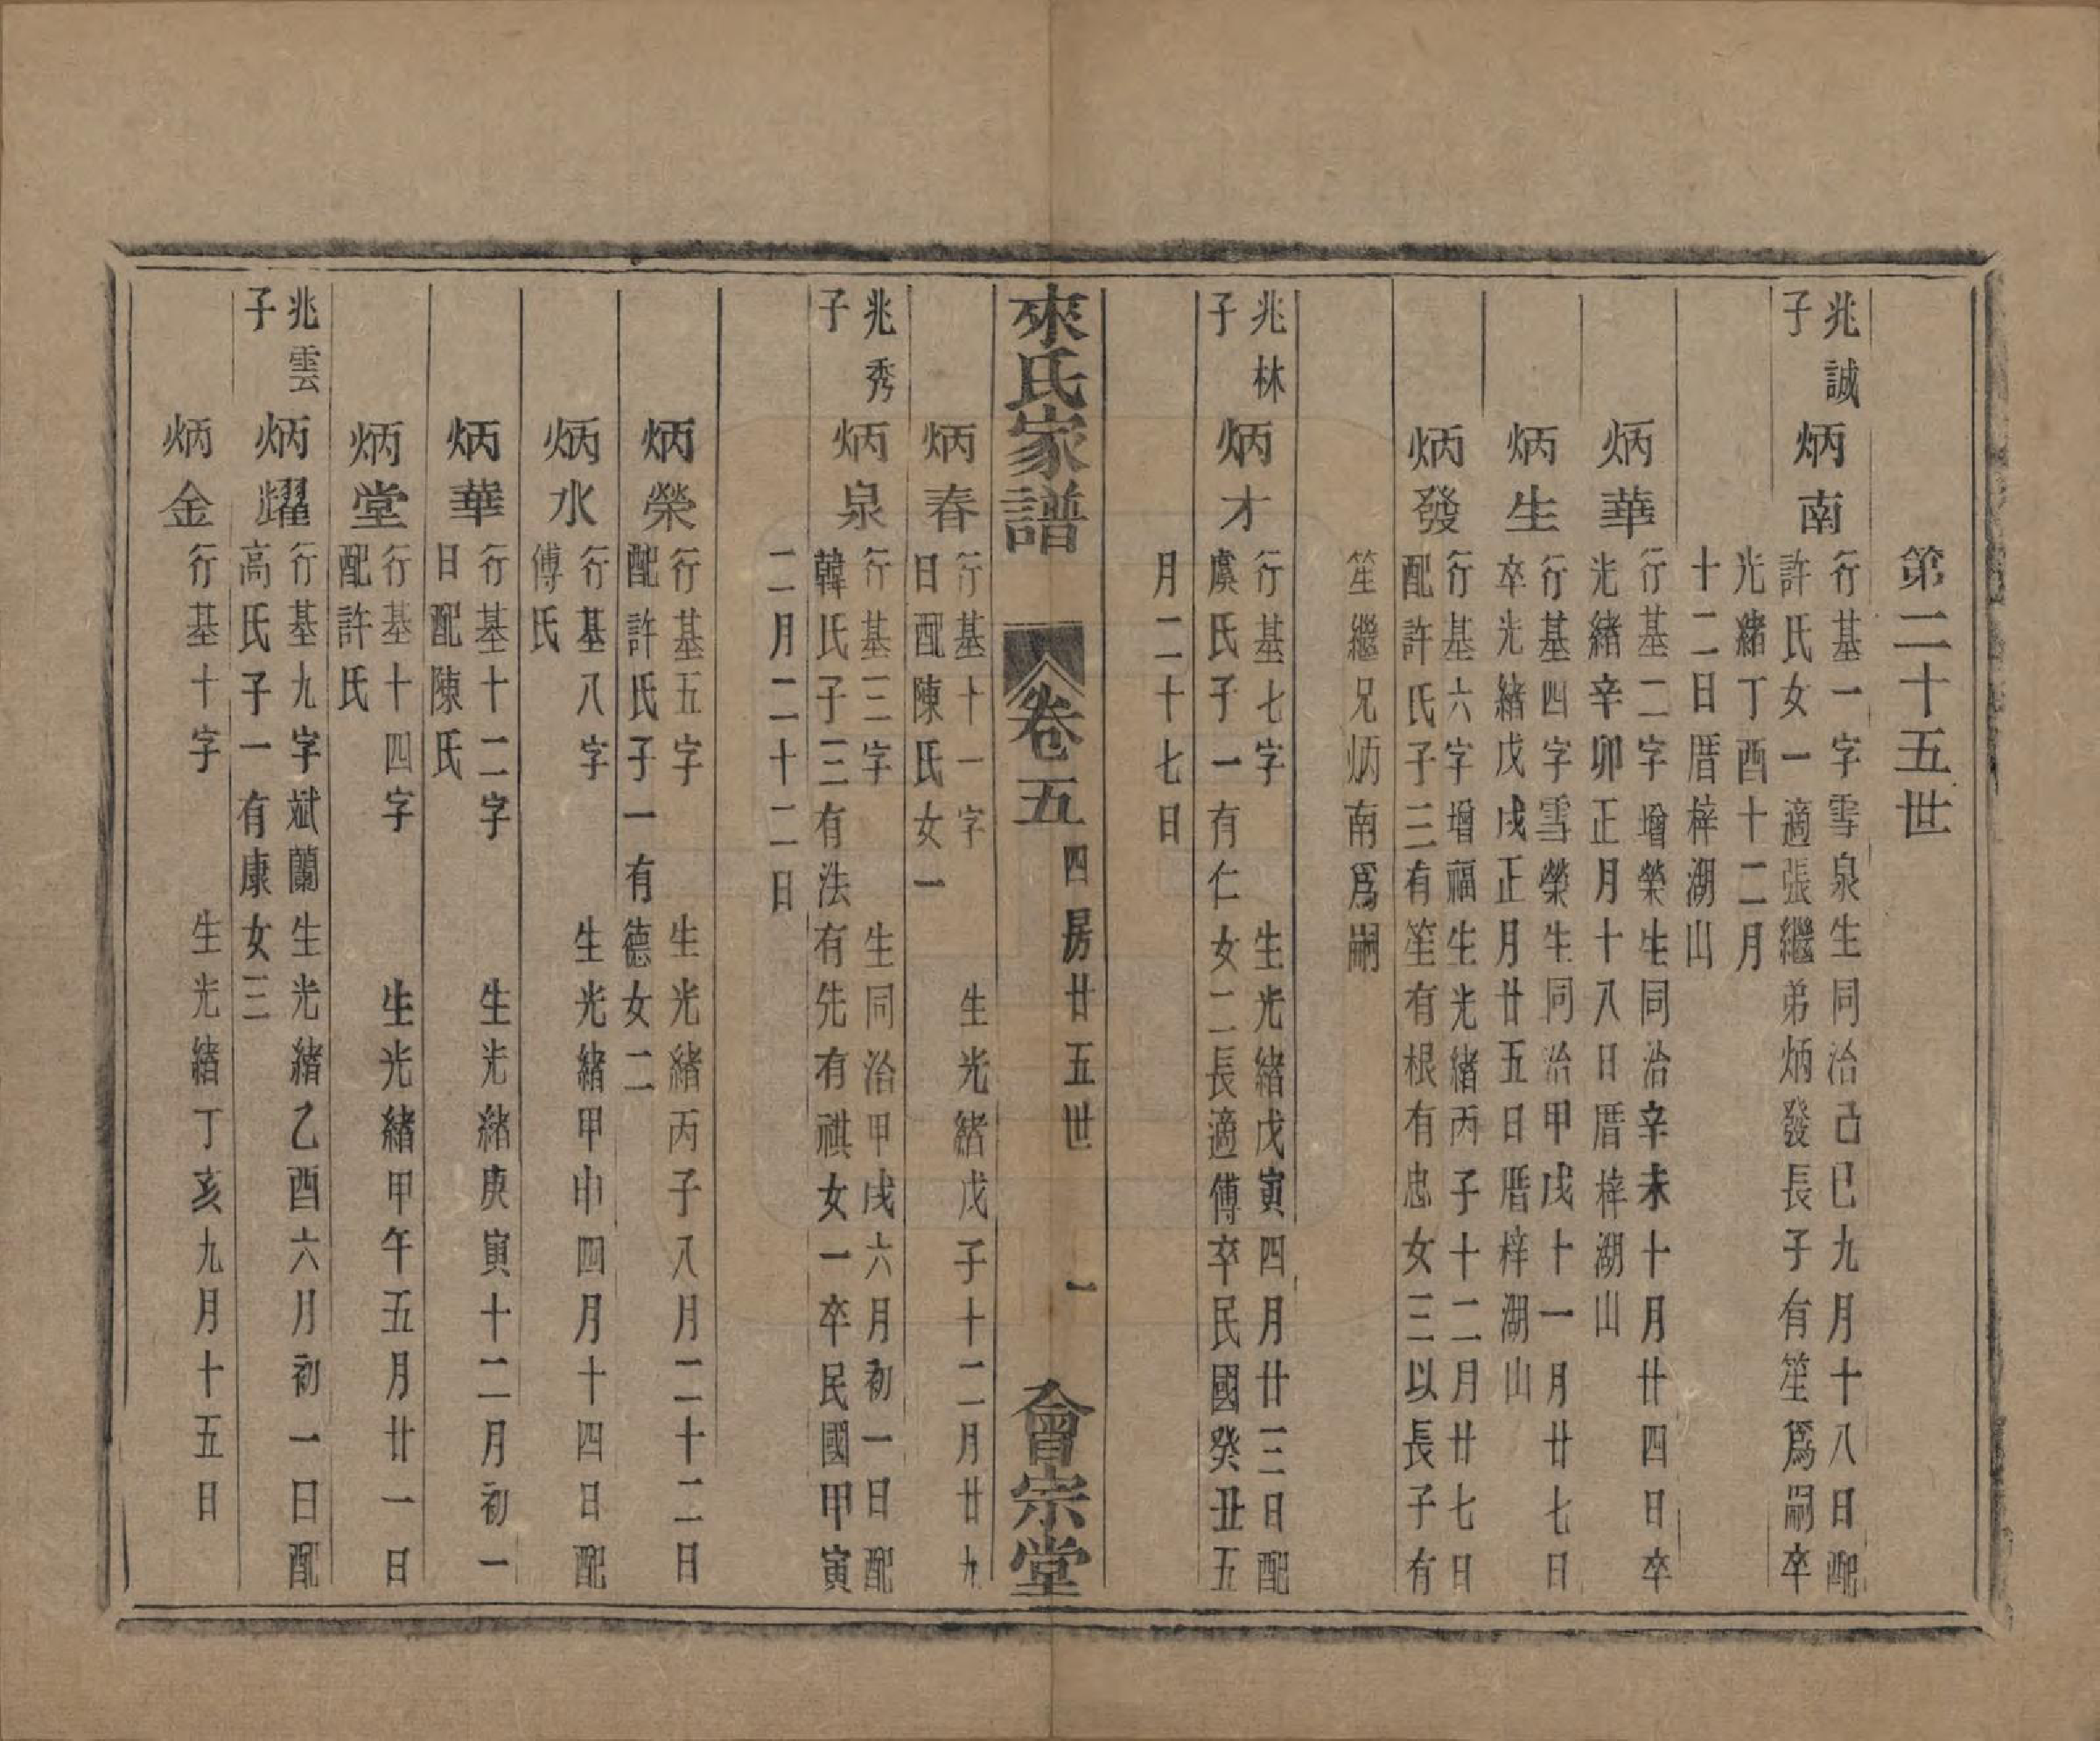 第二十五世
兆誠
子
炳南
行基一字雪泉生同治己巳九月十八日配
許氏女一適張繼弟炳發長子有笙爲嗣卒
光緒丁酉十二月
十二日厝梓湖山
炳華
行基二字增榮生同治辛未十月廿四日卒
光緒辛卯正月十八日厝梓湖山
炳生
行基四字雪榮生同治甲戌十一月廿七日
卒光緒戊戌正月廿五日厝梓湖山
炳發
行基六字增福生光緒丙子十二月廿七日
配許氏子三有笙有根有忠女三以長子有
笙繼兄炳南爲嗣
兆林
子
炳才
行基七字 生光緒戊寅四月廿三日配
虞氏子一有仁女二長適傅卒民國癸丑五
月二十七日
來氏家譜 卷五 四房廿五世 一 會宗堂
炳春
行基十一字 生光緒戊子十二月廿九
日配陳氏女一
兆秀
子
炳泉
行基三字 生同治甲戌六月初一日配
韓氏子三有法有先有祺女一卒民國甲寅
二月二十二日
炳榮
行基五字 生光緒丙子八月二十二日
配許氏子一有德女二
炳水
行基八字 生光緒甲申四月十四日配
傅氏
炳華
行基十二字 生光緒庚寅十二月初一
日配陳氏
炳堂
行基十四字 生光緒甲午五月廿一日
配許氏
兆雲
子
炳燿
行基九字斌蘭生光緒乙酉六月初一日配
高氏子一有康女三
炳金
行基十字 生光緒丁亥九月十五日